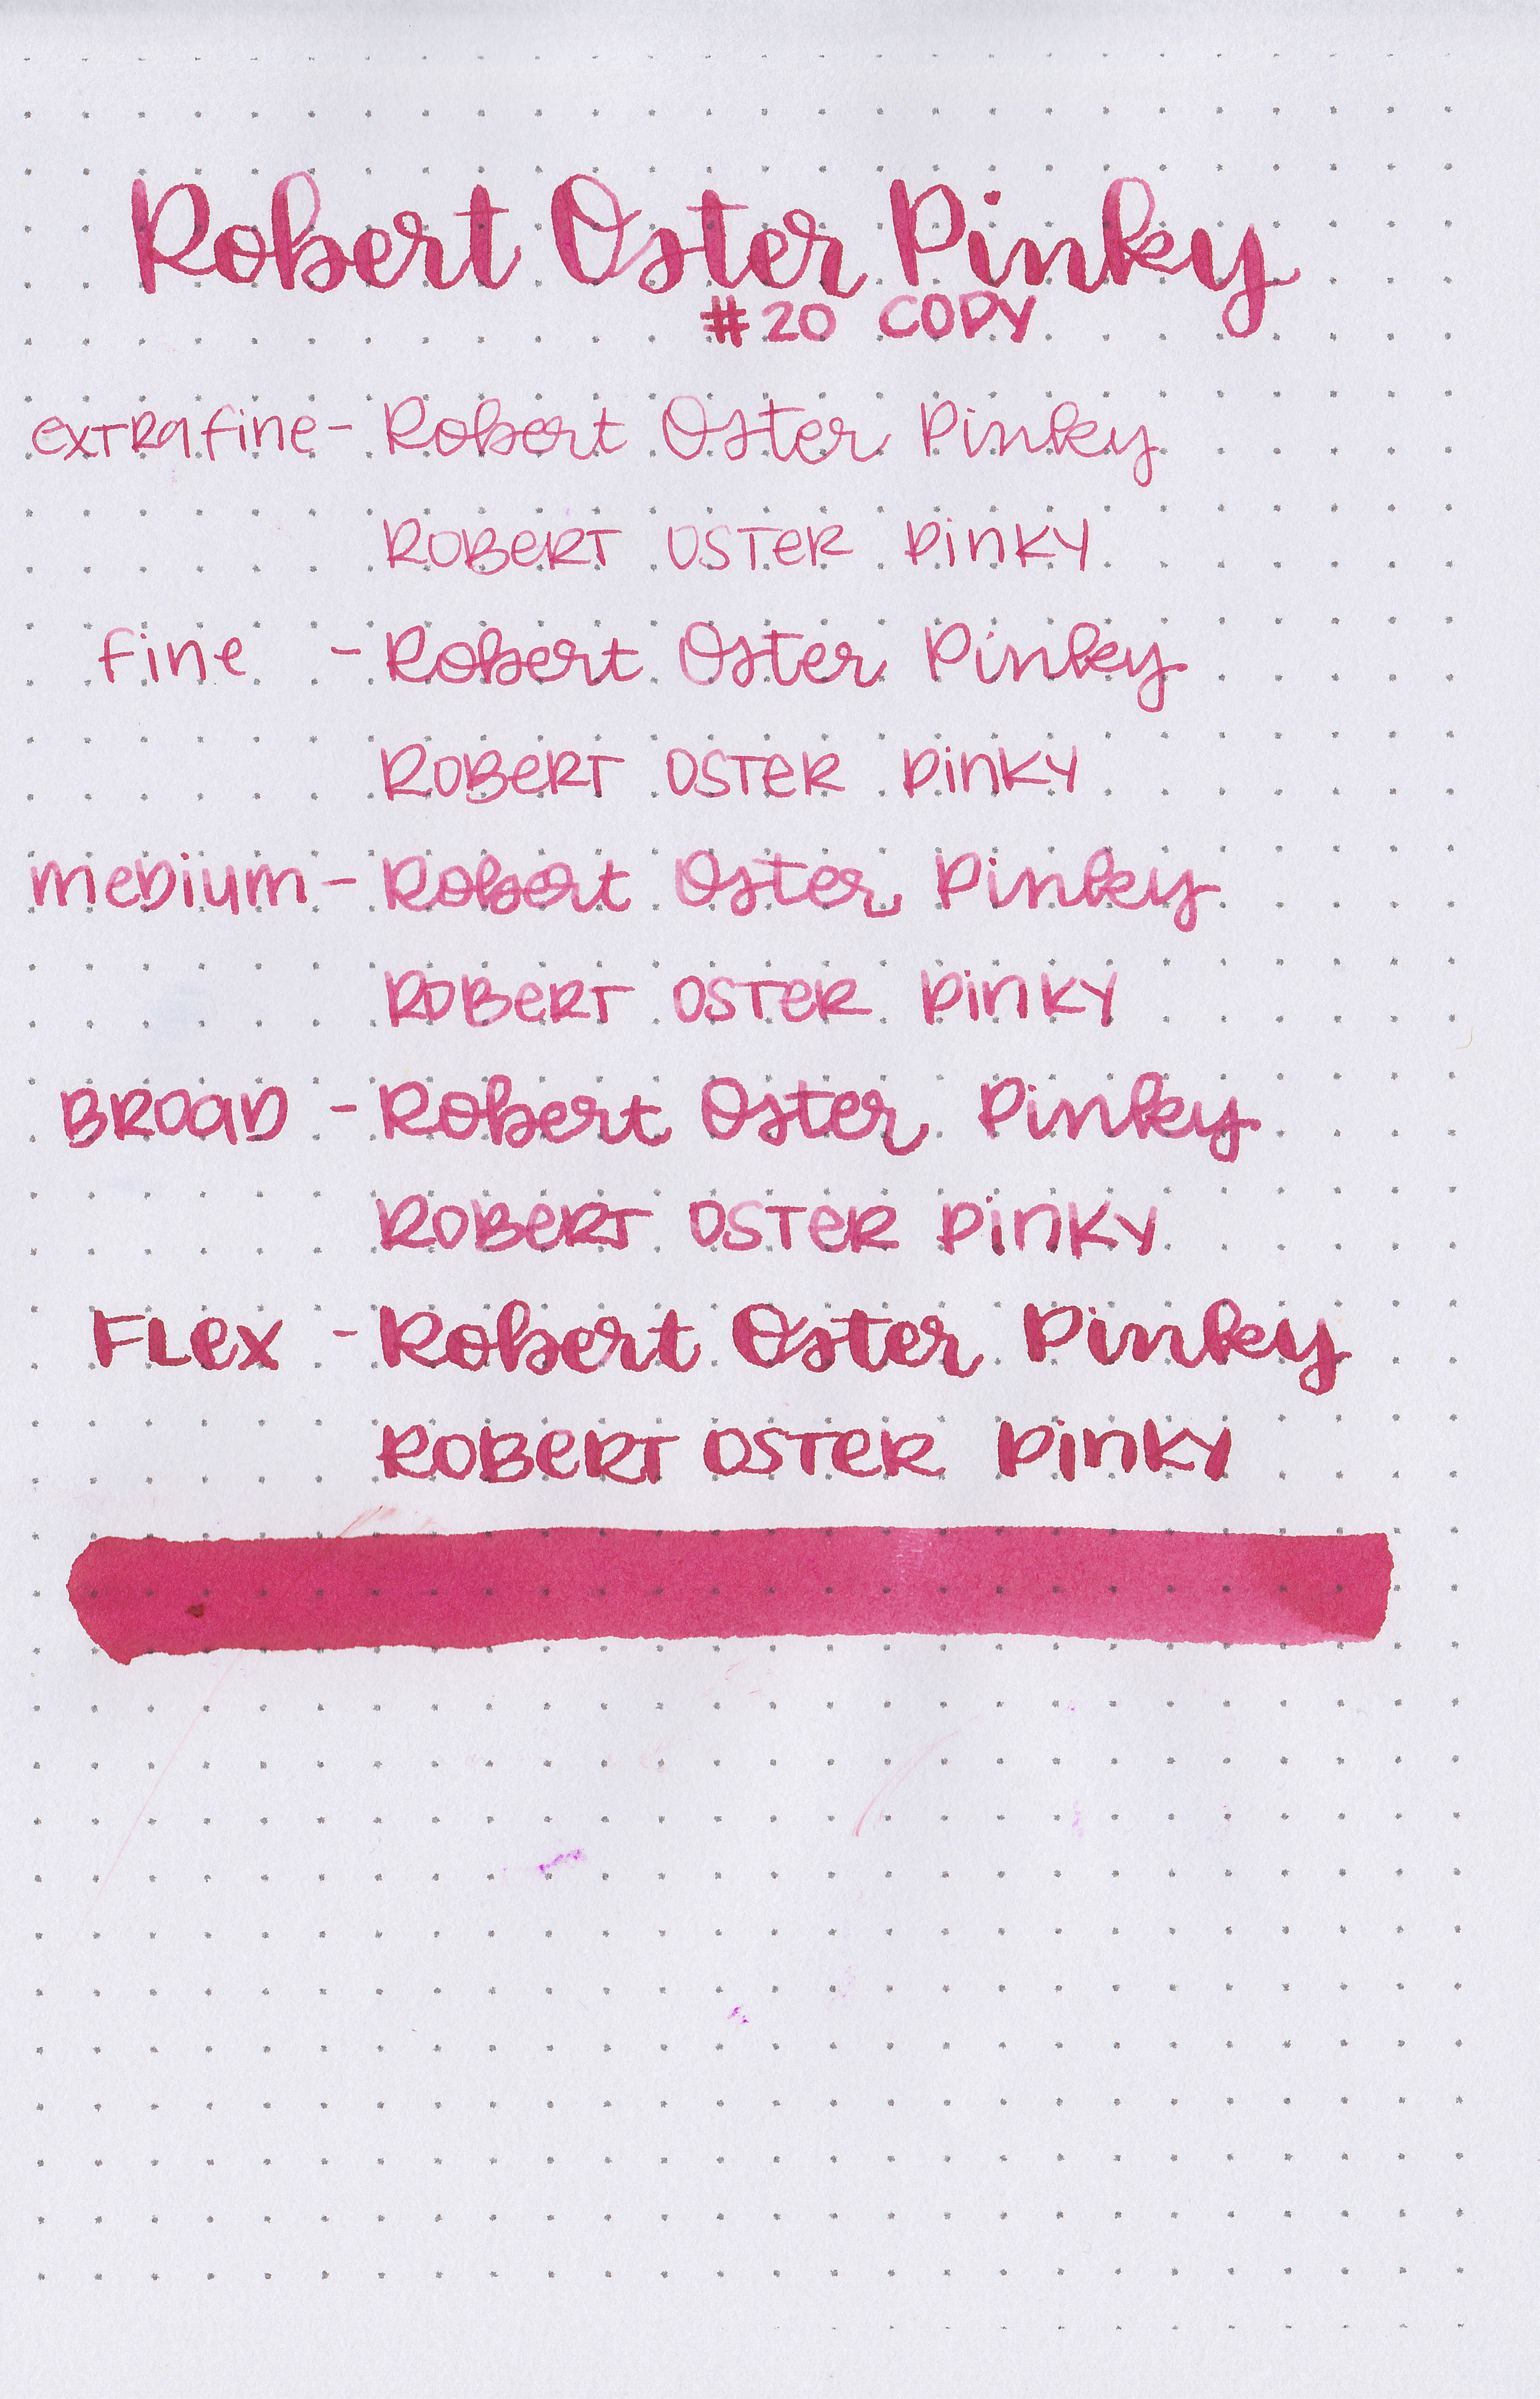 Robert Oster Pinky
#20 COPY
extrafine - Robert Oster Pinky
ROBERT OSTER PINKY
fine - Robert Oster Pinky
ROBERT OSTER PINKY
medium - Robert Oster Pinky
ROBERT OSTER PINKY
BROAD - Robert Oster Pinky
ROBERT OSTER PINKY
FLex - Robert Oster Pinky
ROBERT OSTER PINKY